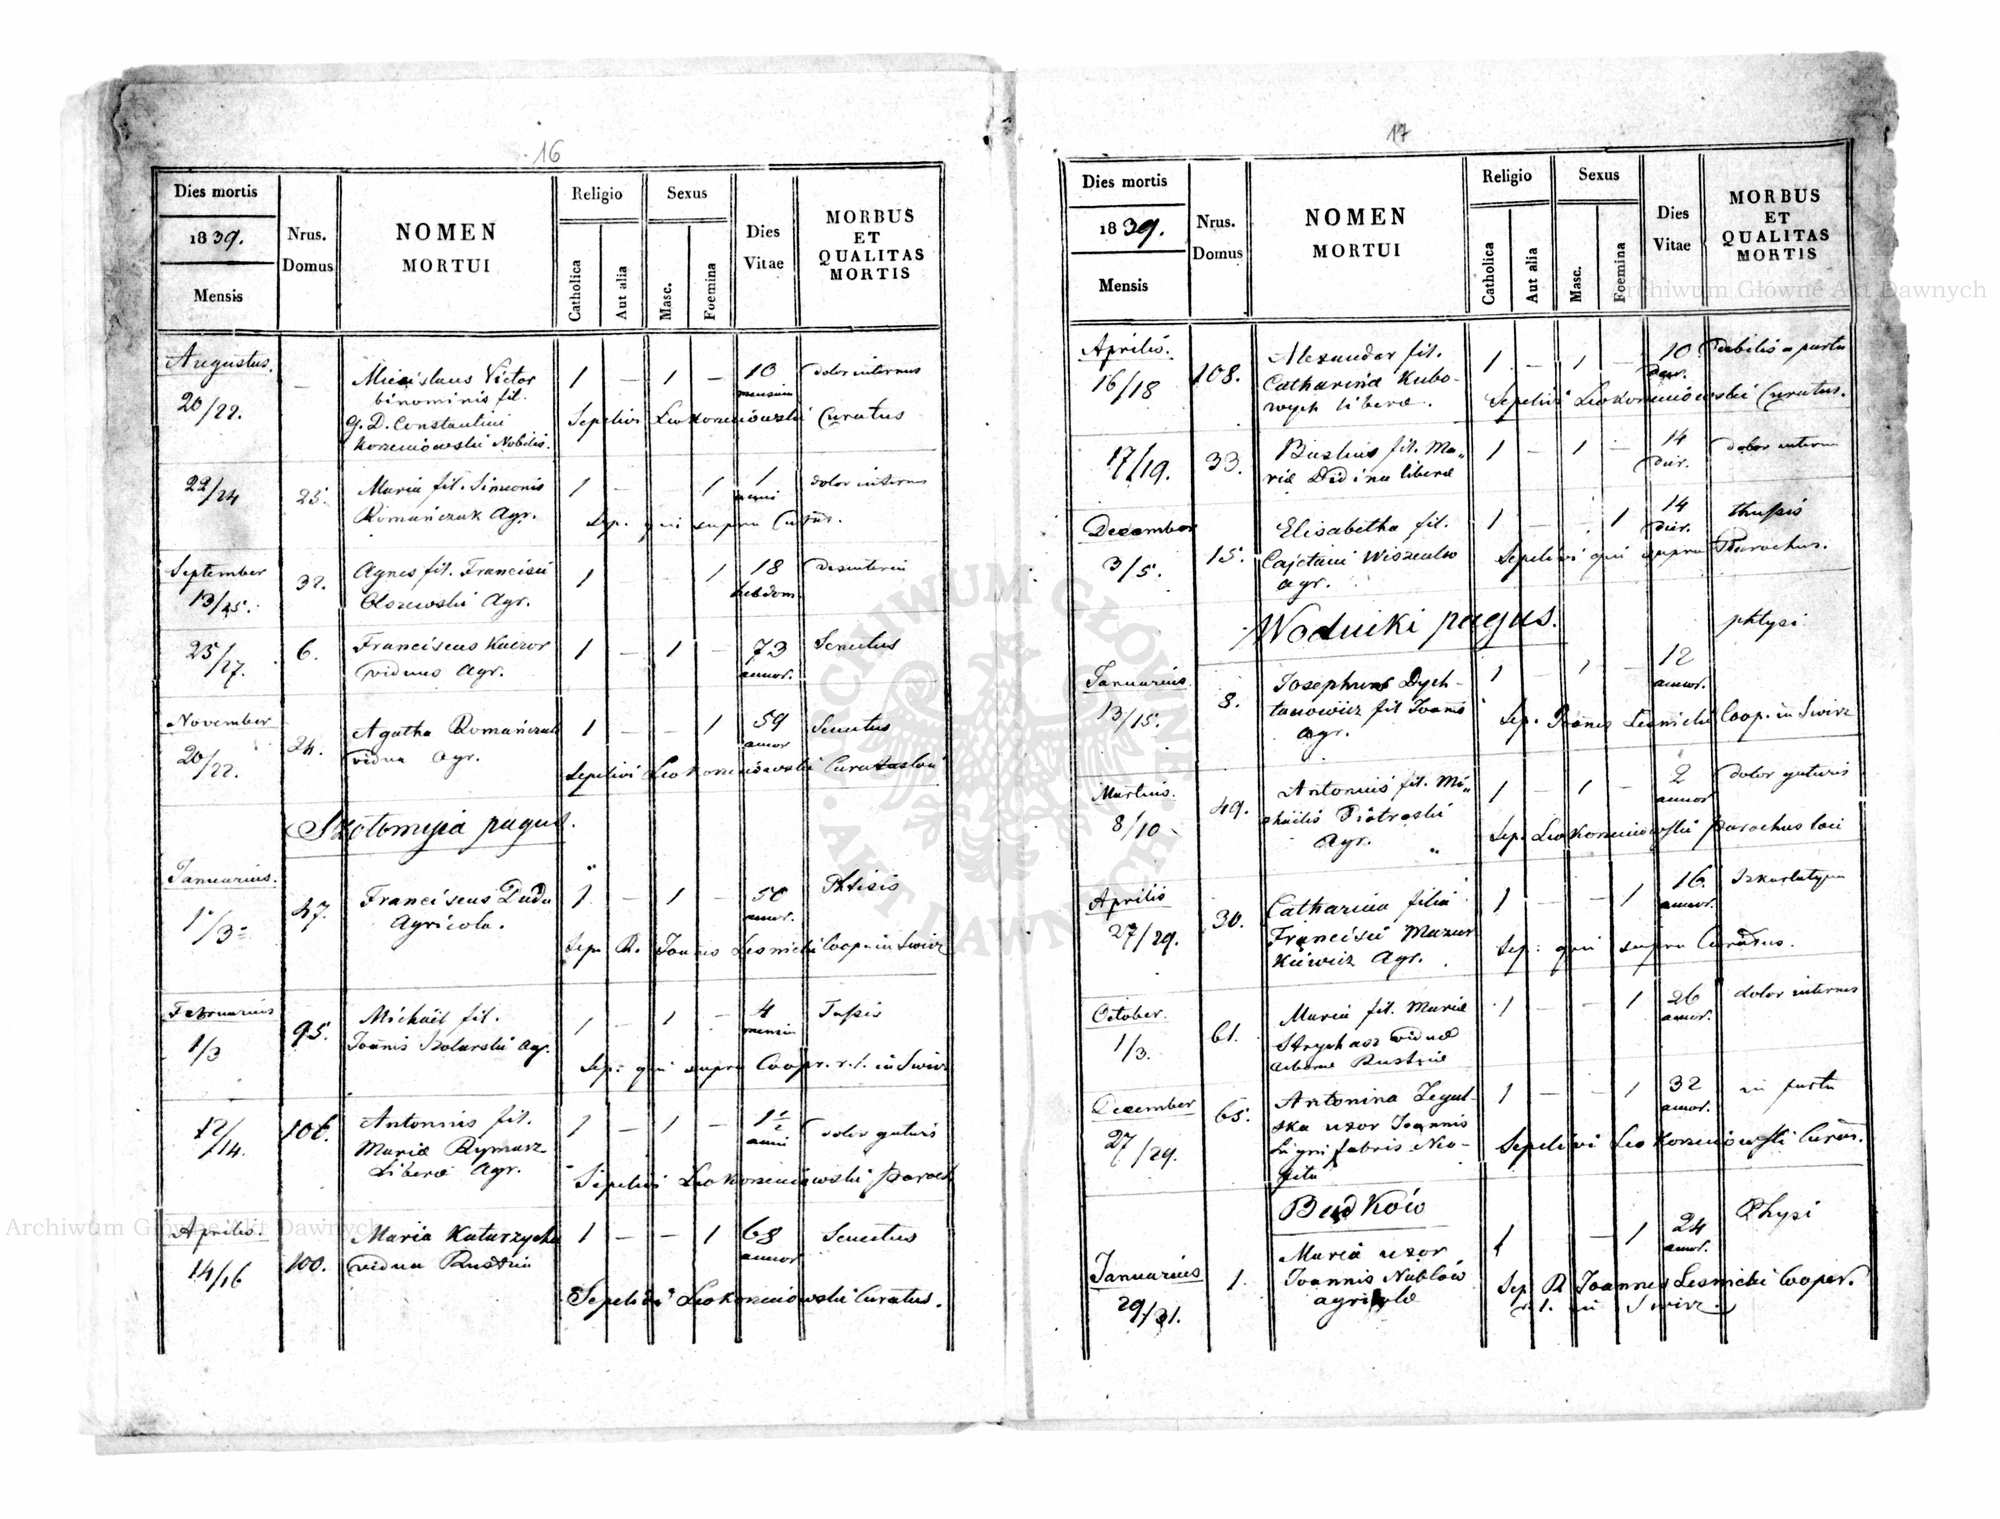 16
Dies mortis
1839.
Mensis
Nrus.
Domus
NOMEN
MORTUI
Religio
Catholica
Aut alia
Sexus
Masc.
Foemina
Dies
Vitae
MORBUS
ET
QUALITAS
MORTIS
Augustus.
20/22.
—
Miecislaus Victor
binominis fil.
G. D. Constantini
Korzeniowski Nobilis.
1 — 1 — 10
mensium
dolor internus
Sepelivi Leo Korzeniowski Curatus
22/24
25.
Maria fil. Simeonis
Romańczuk Agr.
1 — — 1 1
dolor internus
Sep. qui supra
September
13/15.
32.
Agnes fil. Francisci
Olszewski Agr.
1 — — 1 18
hebdom.
Desenteria
25/27.
6.
Franciscus Kaczor
viduus Agr.
1 — 1 — 73
annor.
Senectus
November
20/22.
24.
Agatha Romańczuk
vidua Agr.
1 — — 1 59
annor
Senectus
Sepelivi Leo Korzeniowski Curatus loci
Szołomyja pagus.
Januarius.
1/3
47.
Franciscus Duda
Agricola.
1 — 1 — 50
annor.
Phtisis
Sep. R. Joannes Lesnicki Coop. in Swirz
Februarius
1/3
95.
Michaël fil.
Joannis Bolarski Agr.
1 — 1 — 4
mensiu
Tussis
Sep. qui supra Coopr. r. l. in Swirz
12/14.
106.
Antonius fil.
Mariæ Rymarz
Liberæ Agr.
1 — 1 —
anni
dolor guturis
Sepelivi Leo Korzeniowski Paroch
Aprilis.
14/16
100.
Maria Katarzycha
vidua Rustica
1 — — 1 68
annor
Senectus
Sepelivi Leo Korzeniowski Curatus.
17
Dies mortis
1839.
Mensis
Nrus.
Domus
NOMEN
MORTUI
Religio
Catholica
Aut alia
Sexus
Masc.
Foemina
Dies
Vitae
MORBUS
ET
QUALITAS
MORTIS
Aprilis.
16/18
108.
Alexander fil.
Catharinæ Kubo-
wych liberæ.
1 — 1 — 10
dier.
debilis a partu
Sepelivi Leo Korzeniowski Curatus.
17/19.
33.
Basilius fil. Ma„
riæ Didina liberæ
1 — 1 — 14
dier.
dolor intern
December
3/5.
15.
Elisabetha fil.
Cajetani Wiszenko
agr.
1 — — 1 14
dier.
thussis
Sepelivi qui supra Parochus.
Wodniki pagus.
Januarius
13/15.
8.
Josephus Dych-
tanowicz fil Joannis
Agr.
1 — 1 — 12
annor.
phtysi
Sep. Joannes Lesnicki Coop. in Swirz
Martius.
8/10
49.
Antonius fil. Mi„
chaëlis Piotroski
Agr. „
1 — 1 — 2
annor
dolor guturis
Sep. Leo Korzeniowski parochus loci
Aprilis
27/29.
30.
Catharina filia
Francisci Mazur
kiewicz Agr.
1 — — 1 16
annor.
Szkarlatyna
Sep. qui supra Curatus.
October.
1/3.
61.
Maria fil. Mariæ
Strychasz viduæ
Rusticæ
1 — — 1 26
annor.
dolor internus
December
27/29.
65.
Antonina Zegul-
ska uxor Joannis
Lignifabris Neo-
fita
1 — — 1 32
annor.
in partu
Sepelivi Leo Korzeniowski Curat.
Budków
Januarius
29/31.
1.
Maria uxor
Joannis Nablow
agricolæ
1 1 24
annor.
Physi
Sep R Joannes Lesnicki Cooper.
r. l. in Swirz
Archiwum Główne Akt Dawnych
Archiwum Główne Akt Dawnych
ARCHIWUM GŁÓWNE · AKT DAWNYCH ·